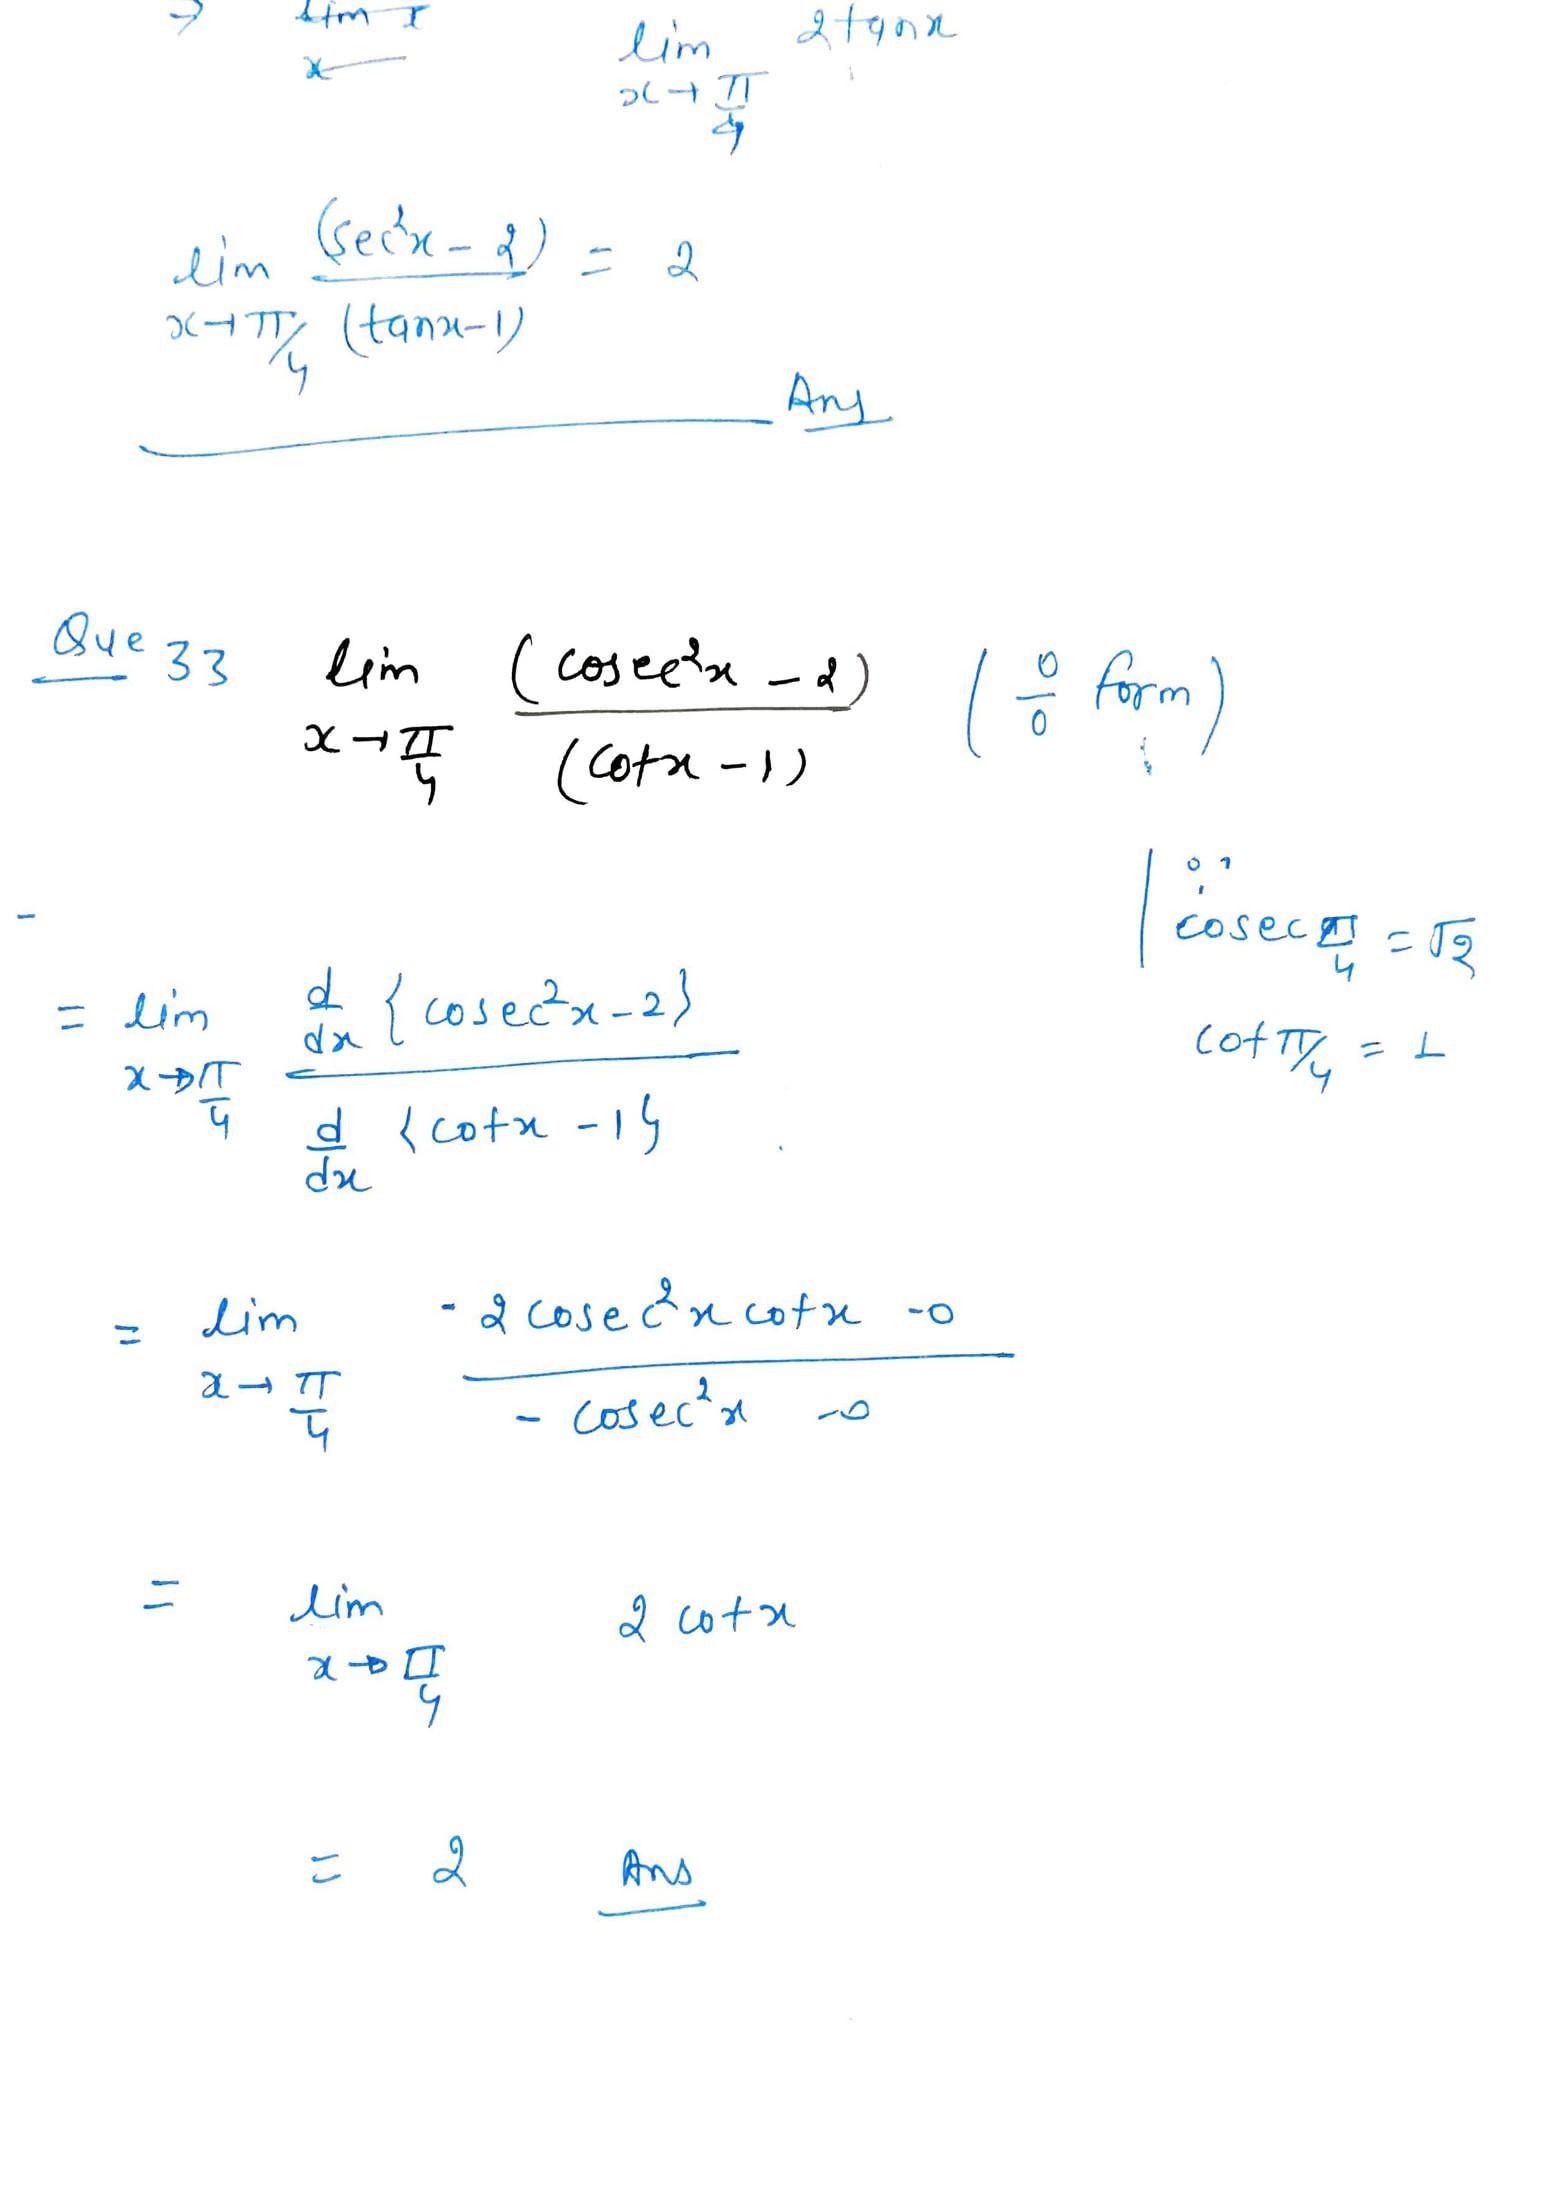 ⇒ lim x→π/4 2tanx
lim x→π/4 (sec²x - 2)/(tanx-1) = 2
Ans
Que 33 lim x→π/4 (cosec²x - 2)/(cotx - 1) (0/0 form)
∵ cosec π/4 = √2
cot π/4 = 1
= lim x→π/4 d/dx {cosec²x-2} / d/dx {cotx -1}
= lim x→π/4 (-2cosec²x cotx -0)/(-cosec²x -0)
= lim x→π/4 2 cotx
= 2 Ans